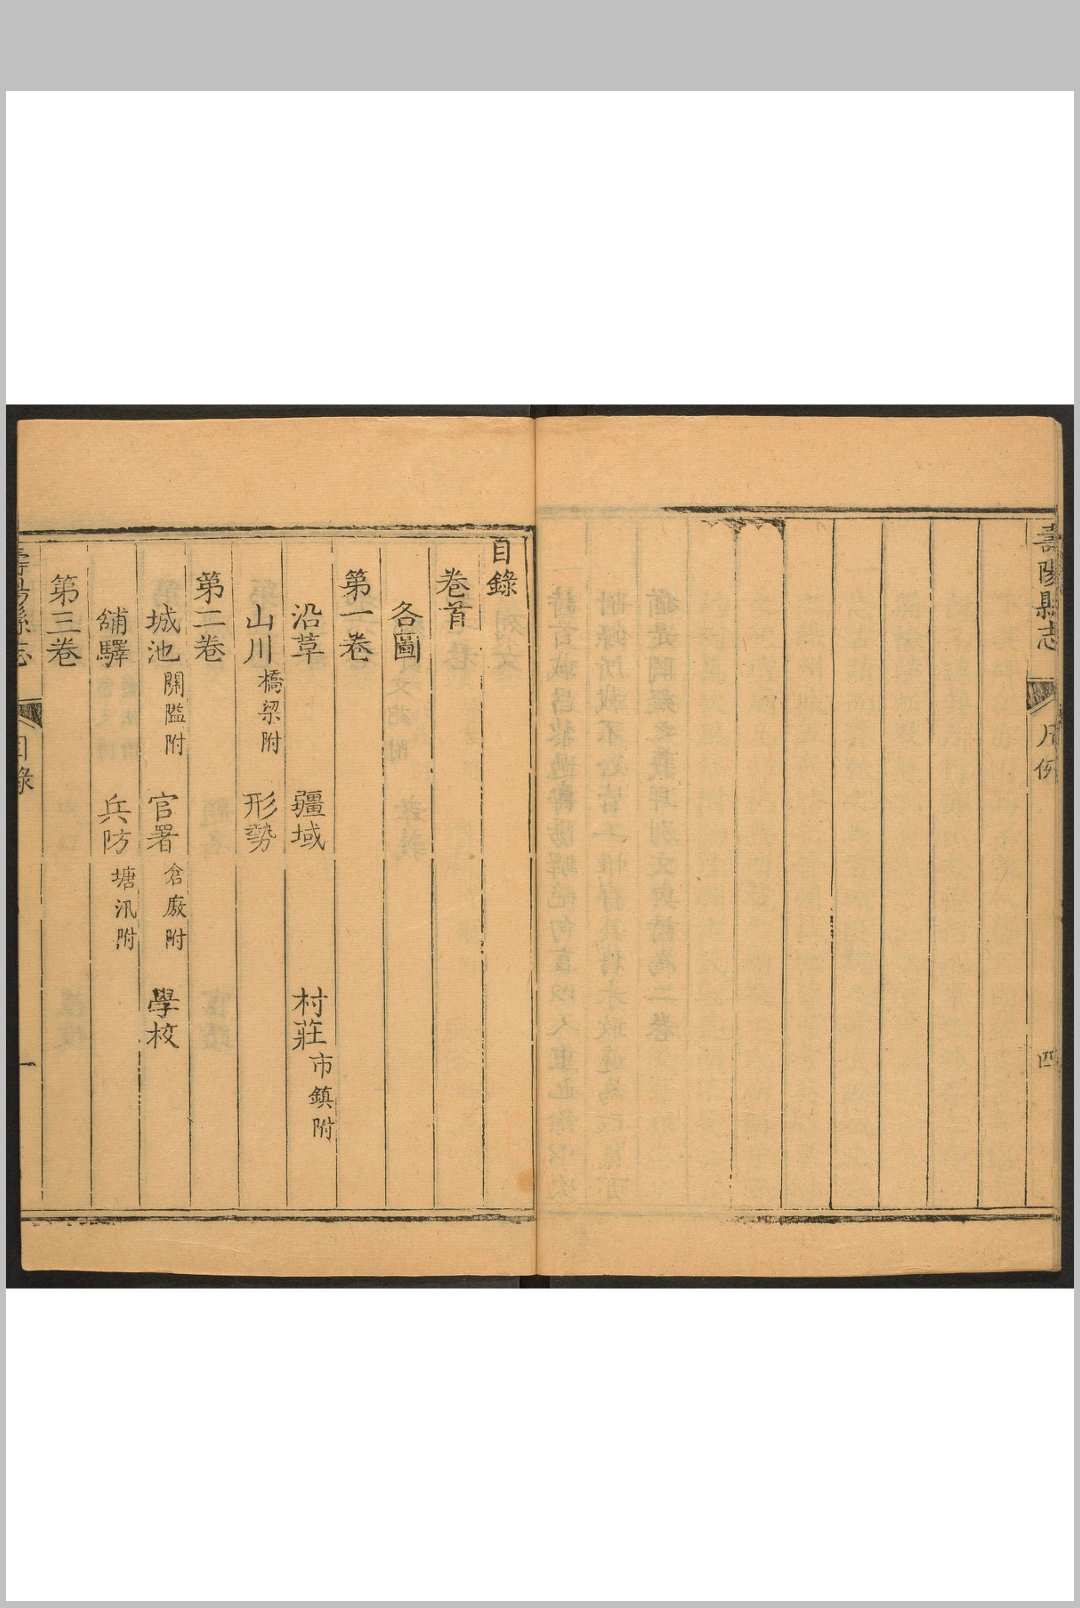 壽陽縣志 凡例 四
目錄
卷首
各圖
第一卷
沿革 疆域 村莊 市鎮附
山川 橋梁附 形勢
第二卷
城池 關隘附 官署 倉廒附 學校
舖驛 兵防 塘汛附
第三卷
壽陽縣志 目錄 一